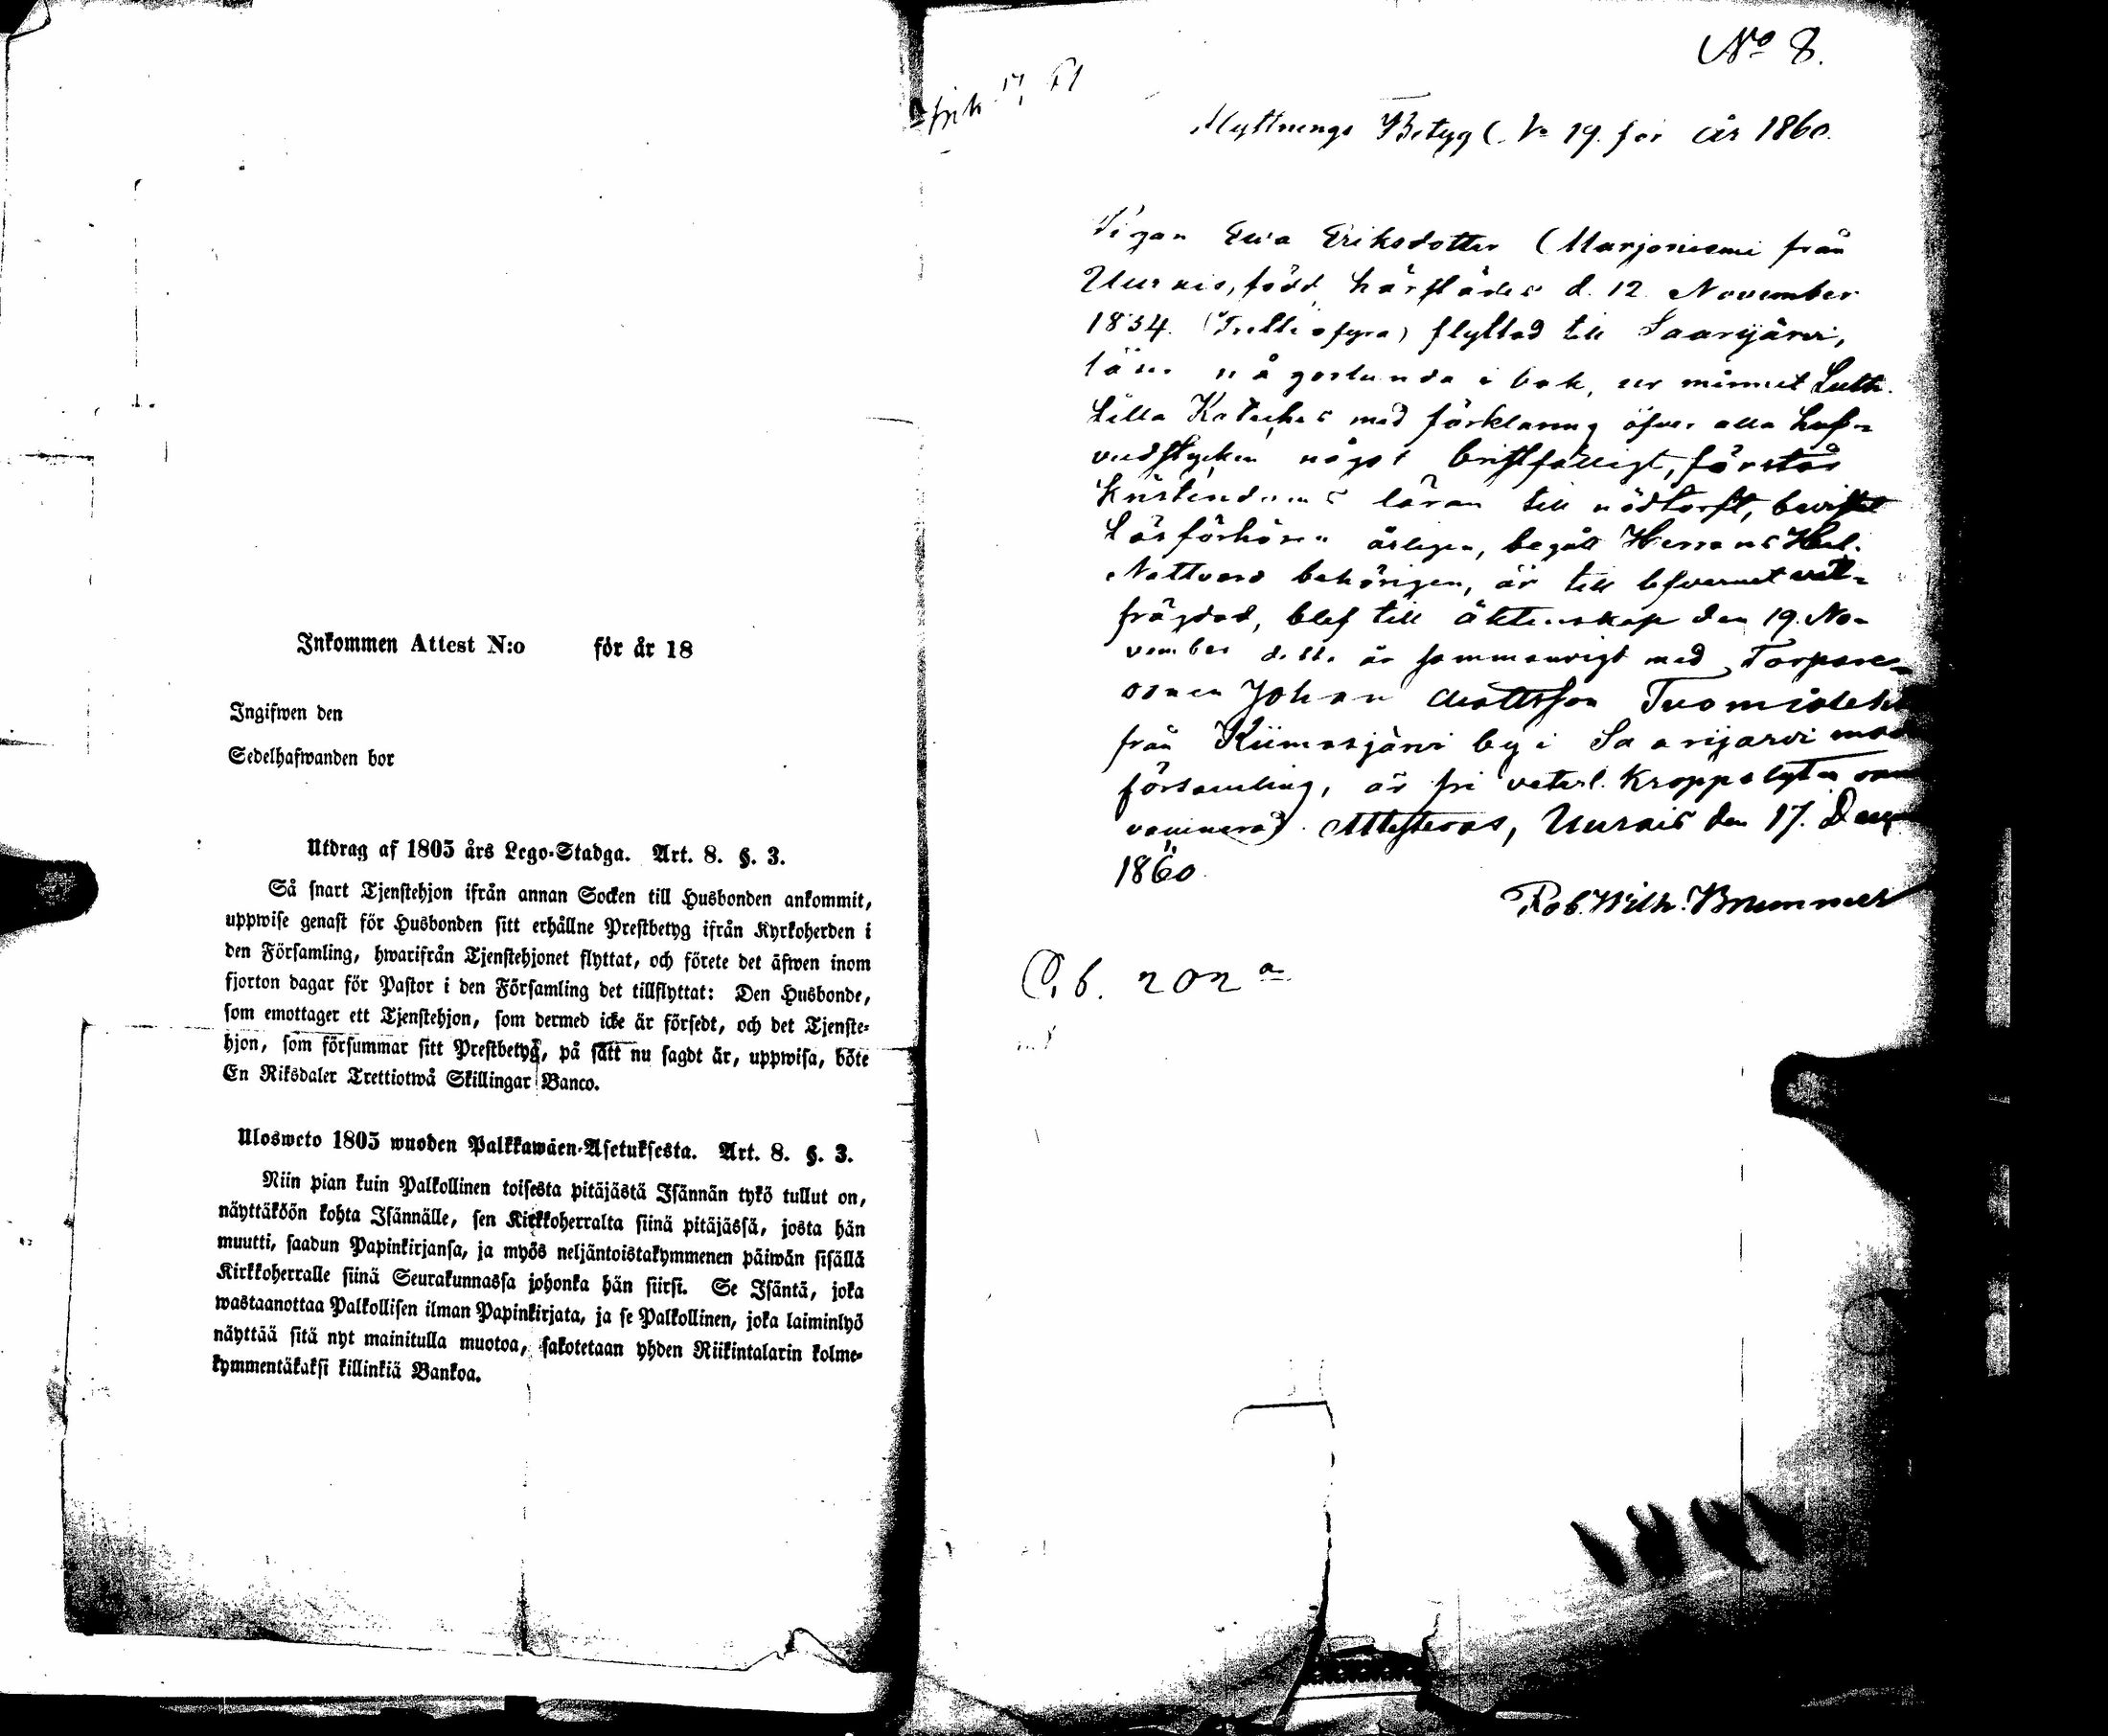 Inkommen Attest N:o för år 18
Ingifwen den
Sedelhafwanden bor
Utdrag af 1805 års Lego-Stadga. Art. 8. §. 3.
Så snart Tjenstehjon ifrån annan Socken till Husbonden ankommit,
uppwise genast för Husbonden sitt erhållne Prestbetyg ifrån Kyrkoherden i
den Församling, hwarifrån Tjenstehjonet flyttat, och förete det äfwen inom
fjorton dagar för Pastor i den Församling det tillflyttat: Den Husbonde,
som emottager ett Tjenstehjon, som dermed icke är försedt, och det Tjenste-
hjon, som försummar sitt Prestbetyg, på sätt nu sagdt är, uppwisa, böte
En Riksdaler Trettiotwå Skillingar Banco.
Ulosweto 1805 wuoden Palkkawäen-Asetuksesta. Art. 8. §. 3.
Niin pian kuin Palkollinen toisesta pitäjästä Isännän tykö tullut on,
näyttäköön kohta Isännälle, sen Kirkkoherralta siinä pitäjässä, josta hän
muutti, saadun Papinkirjansa, ja myös neljäntoistakymmenen päiwän sisällä
Kirkkoherralle siinä Seurakunnassa johonka hän siirsi. Se Isäntä, joka
wastaanottaa Palkollisen ilman Papinkirjata, ja se Palkollinen, joka laiminlyö
näyttää sitä nyt mainitulla muotoa, sakotetaan yhden Riikintalarin kolme-
kymmentäkaksi killinkiä Bankoa.
No 8.
Flyttnings Betyg No 19. för år 1860.
Pigan Eva Eriksdotter Marjoniemi från
Uurais, född härstädes d. 12 November
1834. (Trettiofyra) flyttad till Saarijärvi,
läser någorlunda i bok, ur minnet Luth.
Lilla Kateches med förklaring öfver alla huf-
vudstycken något bristfälligt, förstår
Kristendoms läran till nödtorft, bevistat
Läsförhören årligen, begått Herrans Hel.
Nattvard behörigen, är till lefvernet väl-
frägdad, blef till äktenskap den 19. No-
vember detta år sammanvigt med Torpare-
sonen Johan Mattsson
från Kiimasjärvi by i Saarijärvi
församling, är fri naturl. kroppslyten
vaccinerad. Attesteras, Uurais den 17. Decemb
1860.
Rob. Wilh. Brummer
C. b. 202 a